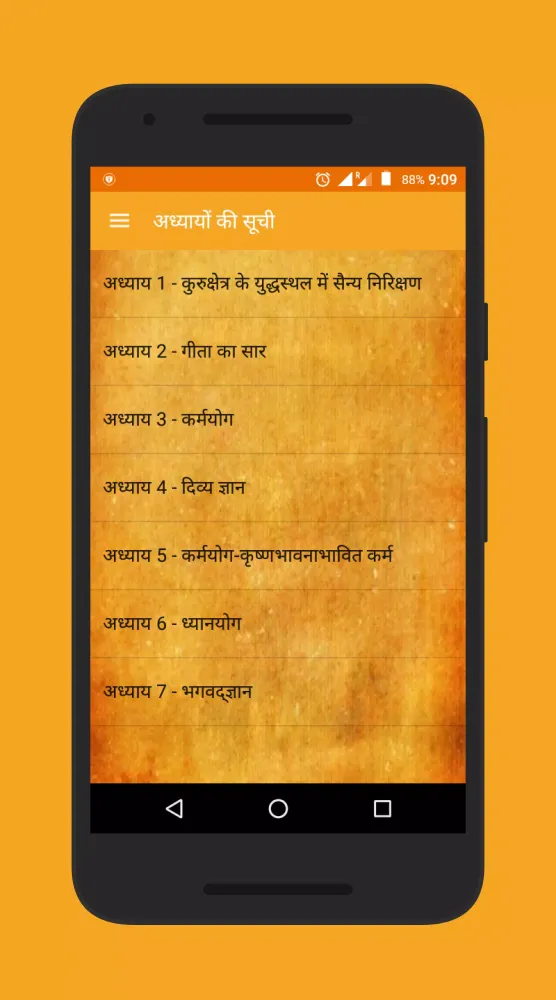 R
88% 9:09
अध्यायों की सूची
अध्याय 1 - कुरुक्षेत्र के युद्धस्थल में सैन्य निरिक्षण
अध्याय 2 - गीता का सार
अध्याय 3 - कर्मयोग
अध्याय 4 - दिव्य ज्ञान
अध्याय 5 - कर्मयोग-कृष्णभावनाभावित कर्म
अध्याय 6 - ध्यानयोग
अध्याय 7 - भगवद्ज्ञान